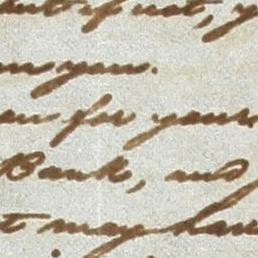 but if not, y
you.
for your
Bank, and
t may have